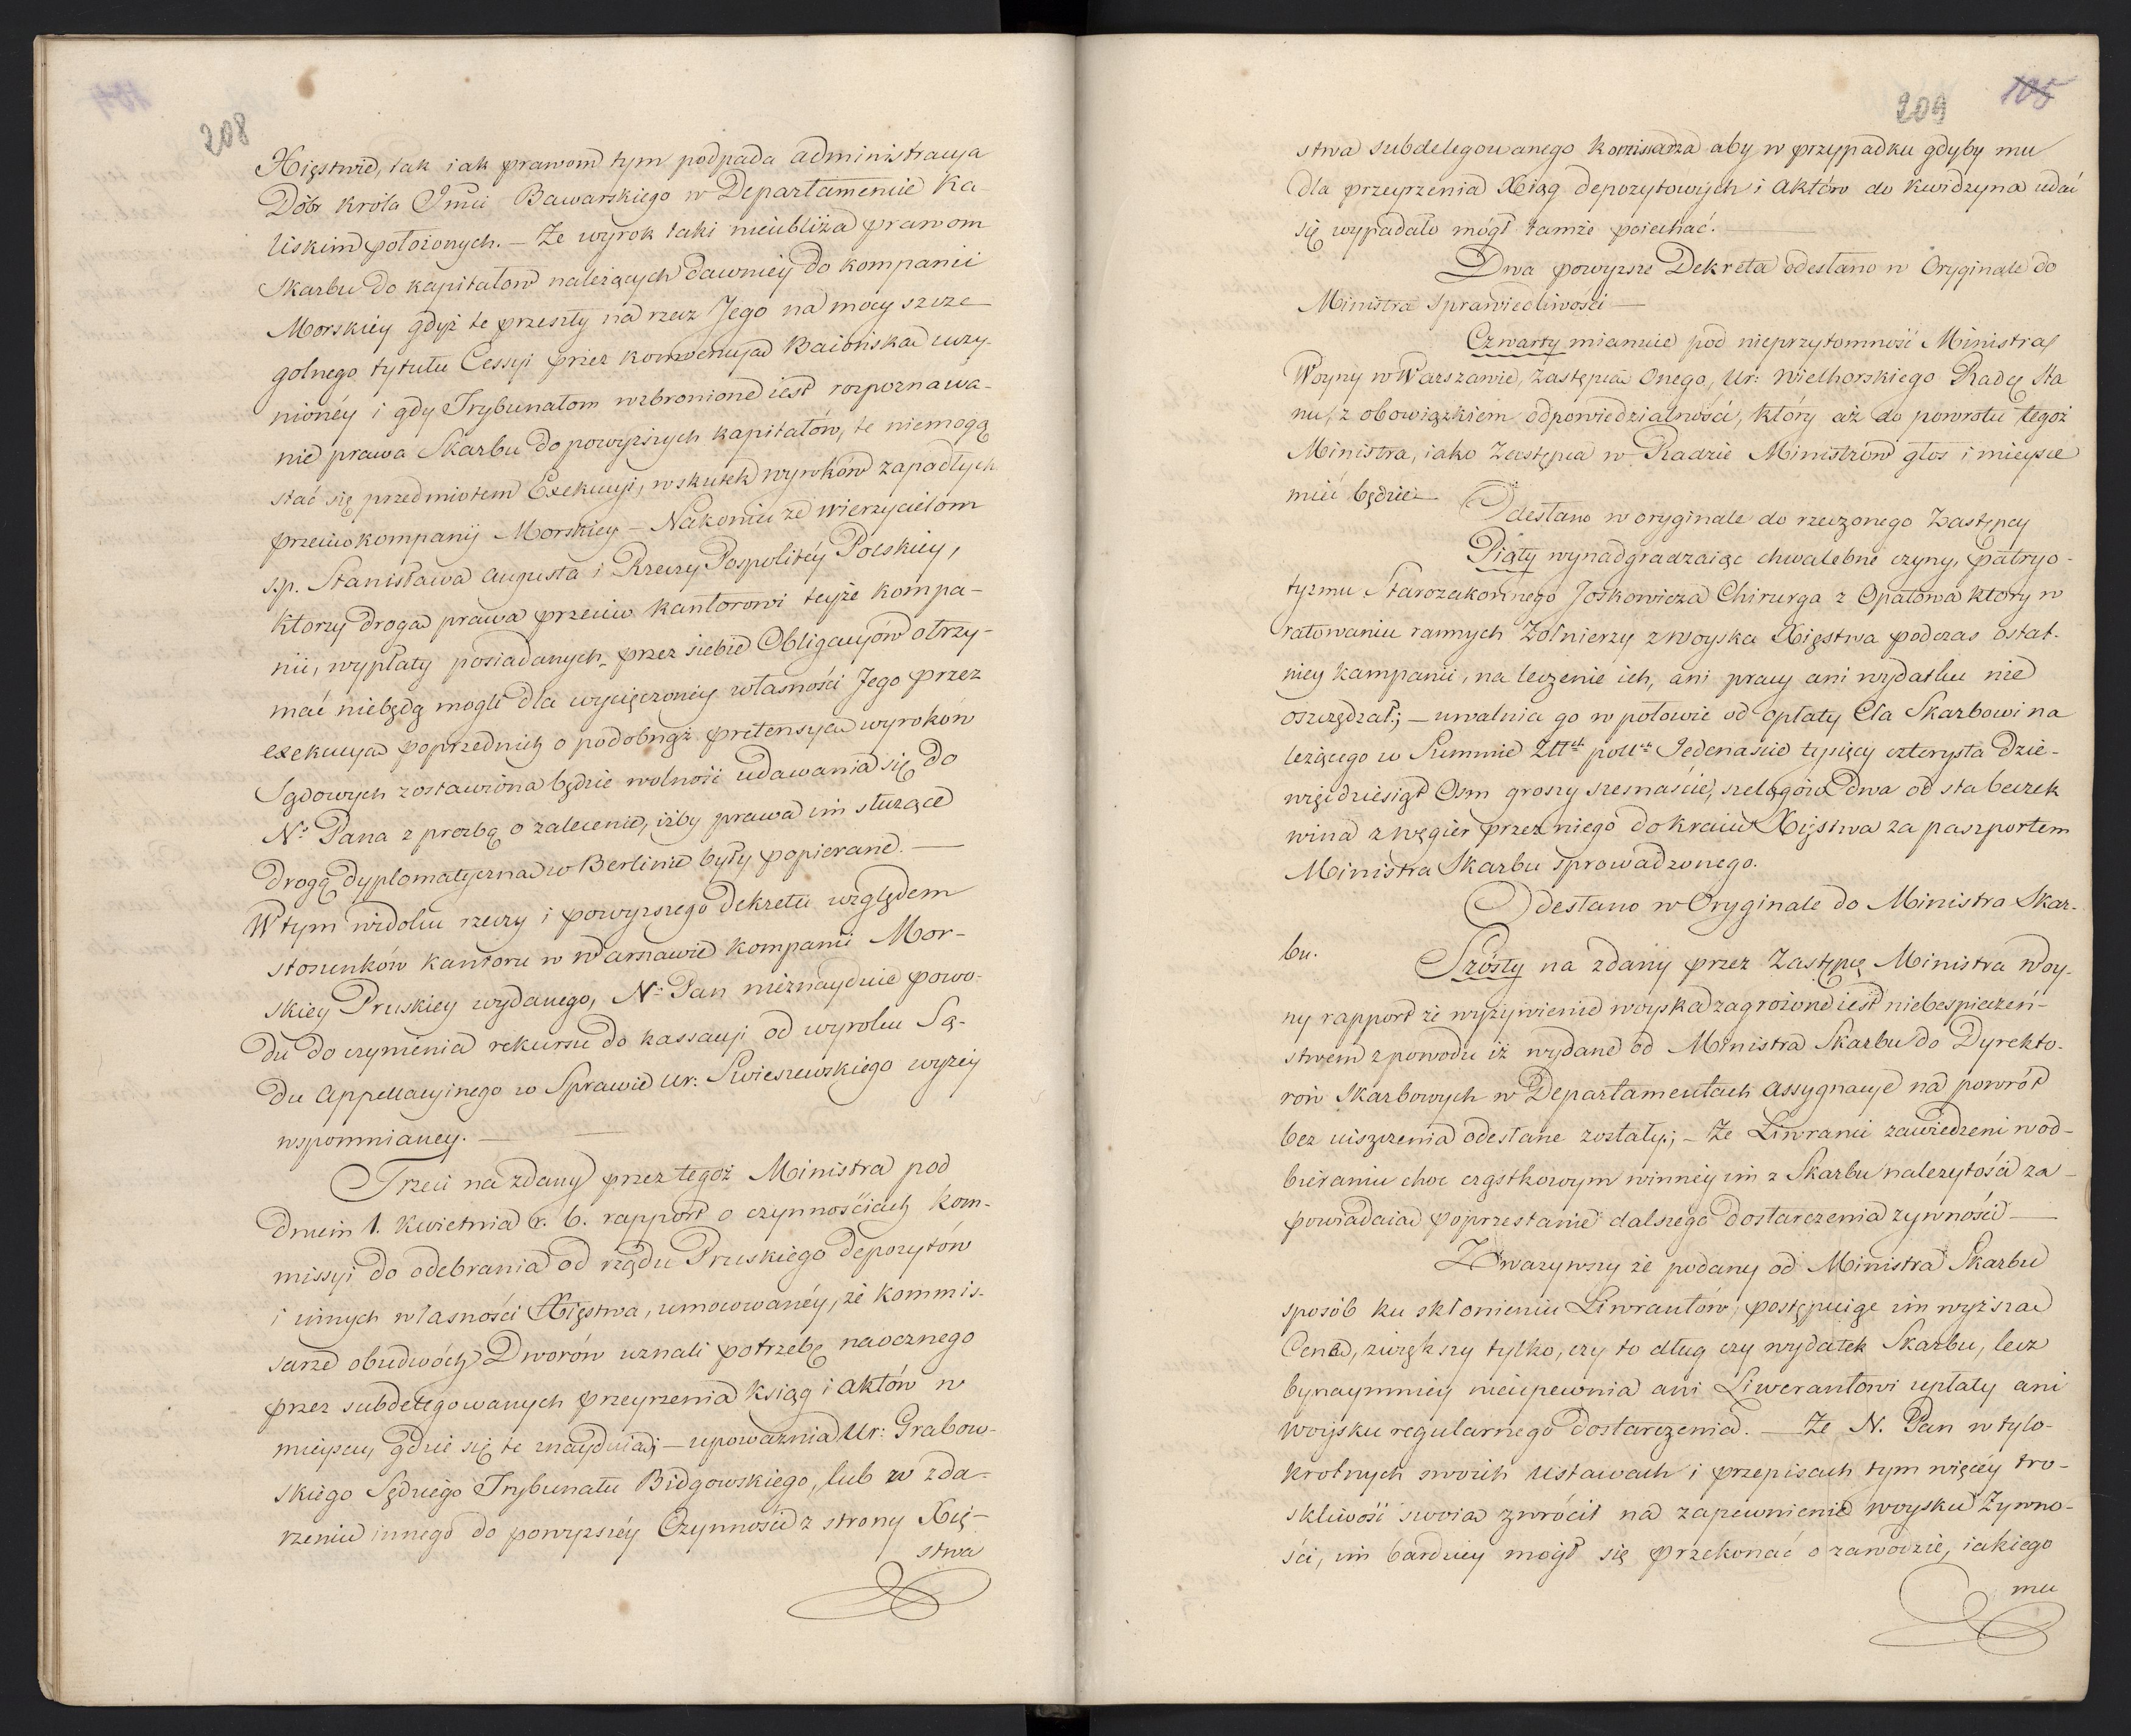 208
Xięstwie, tak iak prawom tym podpada administracya
Dóbr Króla Jmci Bawarskiego w Departamencie Ka-
liskim położonych. – Że wyrok taki nieubliża prawom
Skarbu do kapitałow należących dawniey do kompanii
Morskiey gdyż te przeszły na rzecz Jego na mocy szcze-
golnego tytułu Cessyi przez konwencyą Baiońską uczy-
nionéy i gdy Trybunałom wzbronione iest rozpoznawa-
nie prawa Skarbu do powyższych kapitałów, te niemogą
stać się przedmiotem Exekucyi, w skutek wyroków zapadłych
przeciwko kompanij Morskiey – Nakoniec że wierzycielom
s.p. Stanisława Augusta i Rzeczy Pospolitéy Polskiey,
ktorzy drogą prawa przeciw kantorowi teyże kompa-
nii, wypłaty posiadanych przez siebie Obligacyów otrzy-
mać niebędą mogli dla wycięczoney własności Jego przez
exekucya poprzednich o podobnąż pretensyą wyroków
Sądowych zostawiona będzie wolność udawania się do
N.º Pana z prozbą o zalecenie, iżby prawa im służące
drogą dyplomatyczną w Berlinie były popierane. –
W tym widoku rzeczy i powyzszego dekretu względem
stosunków kantoru w Warszawie kompanii Mor-
skiey Pruskiey wydanego, N.º Pan nieznayduie powo-
du do czynienia rekursu do kassacyi od wyroku Są-
du Appellacyinego w Sprawie Ur: Swieszewskiego wyżey
wspomnianey. –
Trzeci na zdany przez tegoż Ministra pod
dniem 1. Kwietnia r. b. rapport o czynnościach Kom-
missyi do odebrania od rządu Pruskiego depozytów
i innych własności Xięstwa, umocowanéy, że kommis-
sarze obudwóch Dworów uznali potrzebę naocznego
przez subdelegowanych przeyrzenia ksiąg i aktów w
mieyscu, gdzie się te znayduią; – upoważnia Ur: Grabow-
skiego Sędziego Trybunału Bidgowskiego, lub w zda-
rzeniu innego do powyzszéy Czynności z strony Xię-
stwa
209 105
stwa subdelegowanego Komissarza aby w przypadku gdyby mu
dla przeyrzenia Xiąg depozytowych i Aktów do Kwidzyna udać
się wypadało mógł tamże poiechać. –
Dwa powyzsze Dekreta odesłano w Oryginale do
Ministra Sprawiedliwości –
Czwarty mianuie pod nieprzytomność Ministra
Woyny w Warszawie, Zastępcą Onego, Ur: Wielhorskiego Radcę Sta
nu, z obowiązkiem odpowiedzialności, który aż do powrotu tegoż
Ministra, iako Zastępca w Radzie Ministrów głos i mieysce
mieć będzie –
Odesłano w oryginale do rzeczonego Zastępcy
Piąty wynadgradzaiąc chwalebne czyny, patryo-
tyzmu Starozakonnego Joskowicza Chirurga z Opatowa ktory w
ratowaniu rannych Żołnierzy z woyska Xięstwa podczas ostat-
niey kampanii, na leczenie ich, ani pracy ani wydatku nie
oszczędzał; – uwalnia go w połowie od opłaty Cła Skarbowi na
leżącego w Summie Złł. poll. Jedenaście tysięcy czterysta dzie-
więćdziesiąt Osm groszy szesnaście, szelągów dwa od sta beczek
wina z węgier przez niego do kraiu Xięstwa za paszportem
Ministra Skarbu sprowadzonego.
Odesłano w Oryginale do Ministra Skar-
bu.
Szósty na zdany przez Zastępcę Ministra Woy-
ny rapport że wyżywienie woyska zagrożone iest niebespieczeń-
stwem z powodu iż wydane od Ministra Skarbu do Dyrekto-
row Skarbowych w Departamentach assygnacye na powrót
bez uiszczenia odesłane zostały; – Że Liwranci zawiedzeni w od-
bieraniu choc cząstkowym winnéy im z Skarbu należytości za-
powiadaią poprzestanie dalszego dostarczenia zywności –
Zważywszy że podany od Ministra Skarbu
sposób ku skłonieniu Liwrantów, postępuiąc im wyższą
Cenę, zwiększy tylko, czy to dług czy wydatek Skarbu, lecz
bynaymniey nieupewnia ani Liwerantowi upłaty ani
woysku regularnego dostarczenia. – Że N. Pan w tylo-
krotnych swoich ustawach i przepisach tym więcéy tro-
skliwość swoią zwrócił na zapewnienie woysku Żywno-
ści, im bardziey mógł się przekonać o zawodzie, iakiego
mu